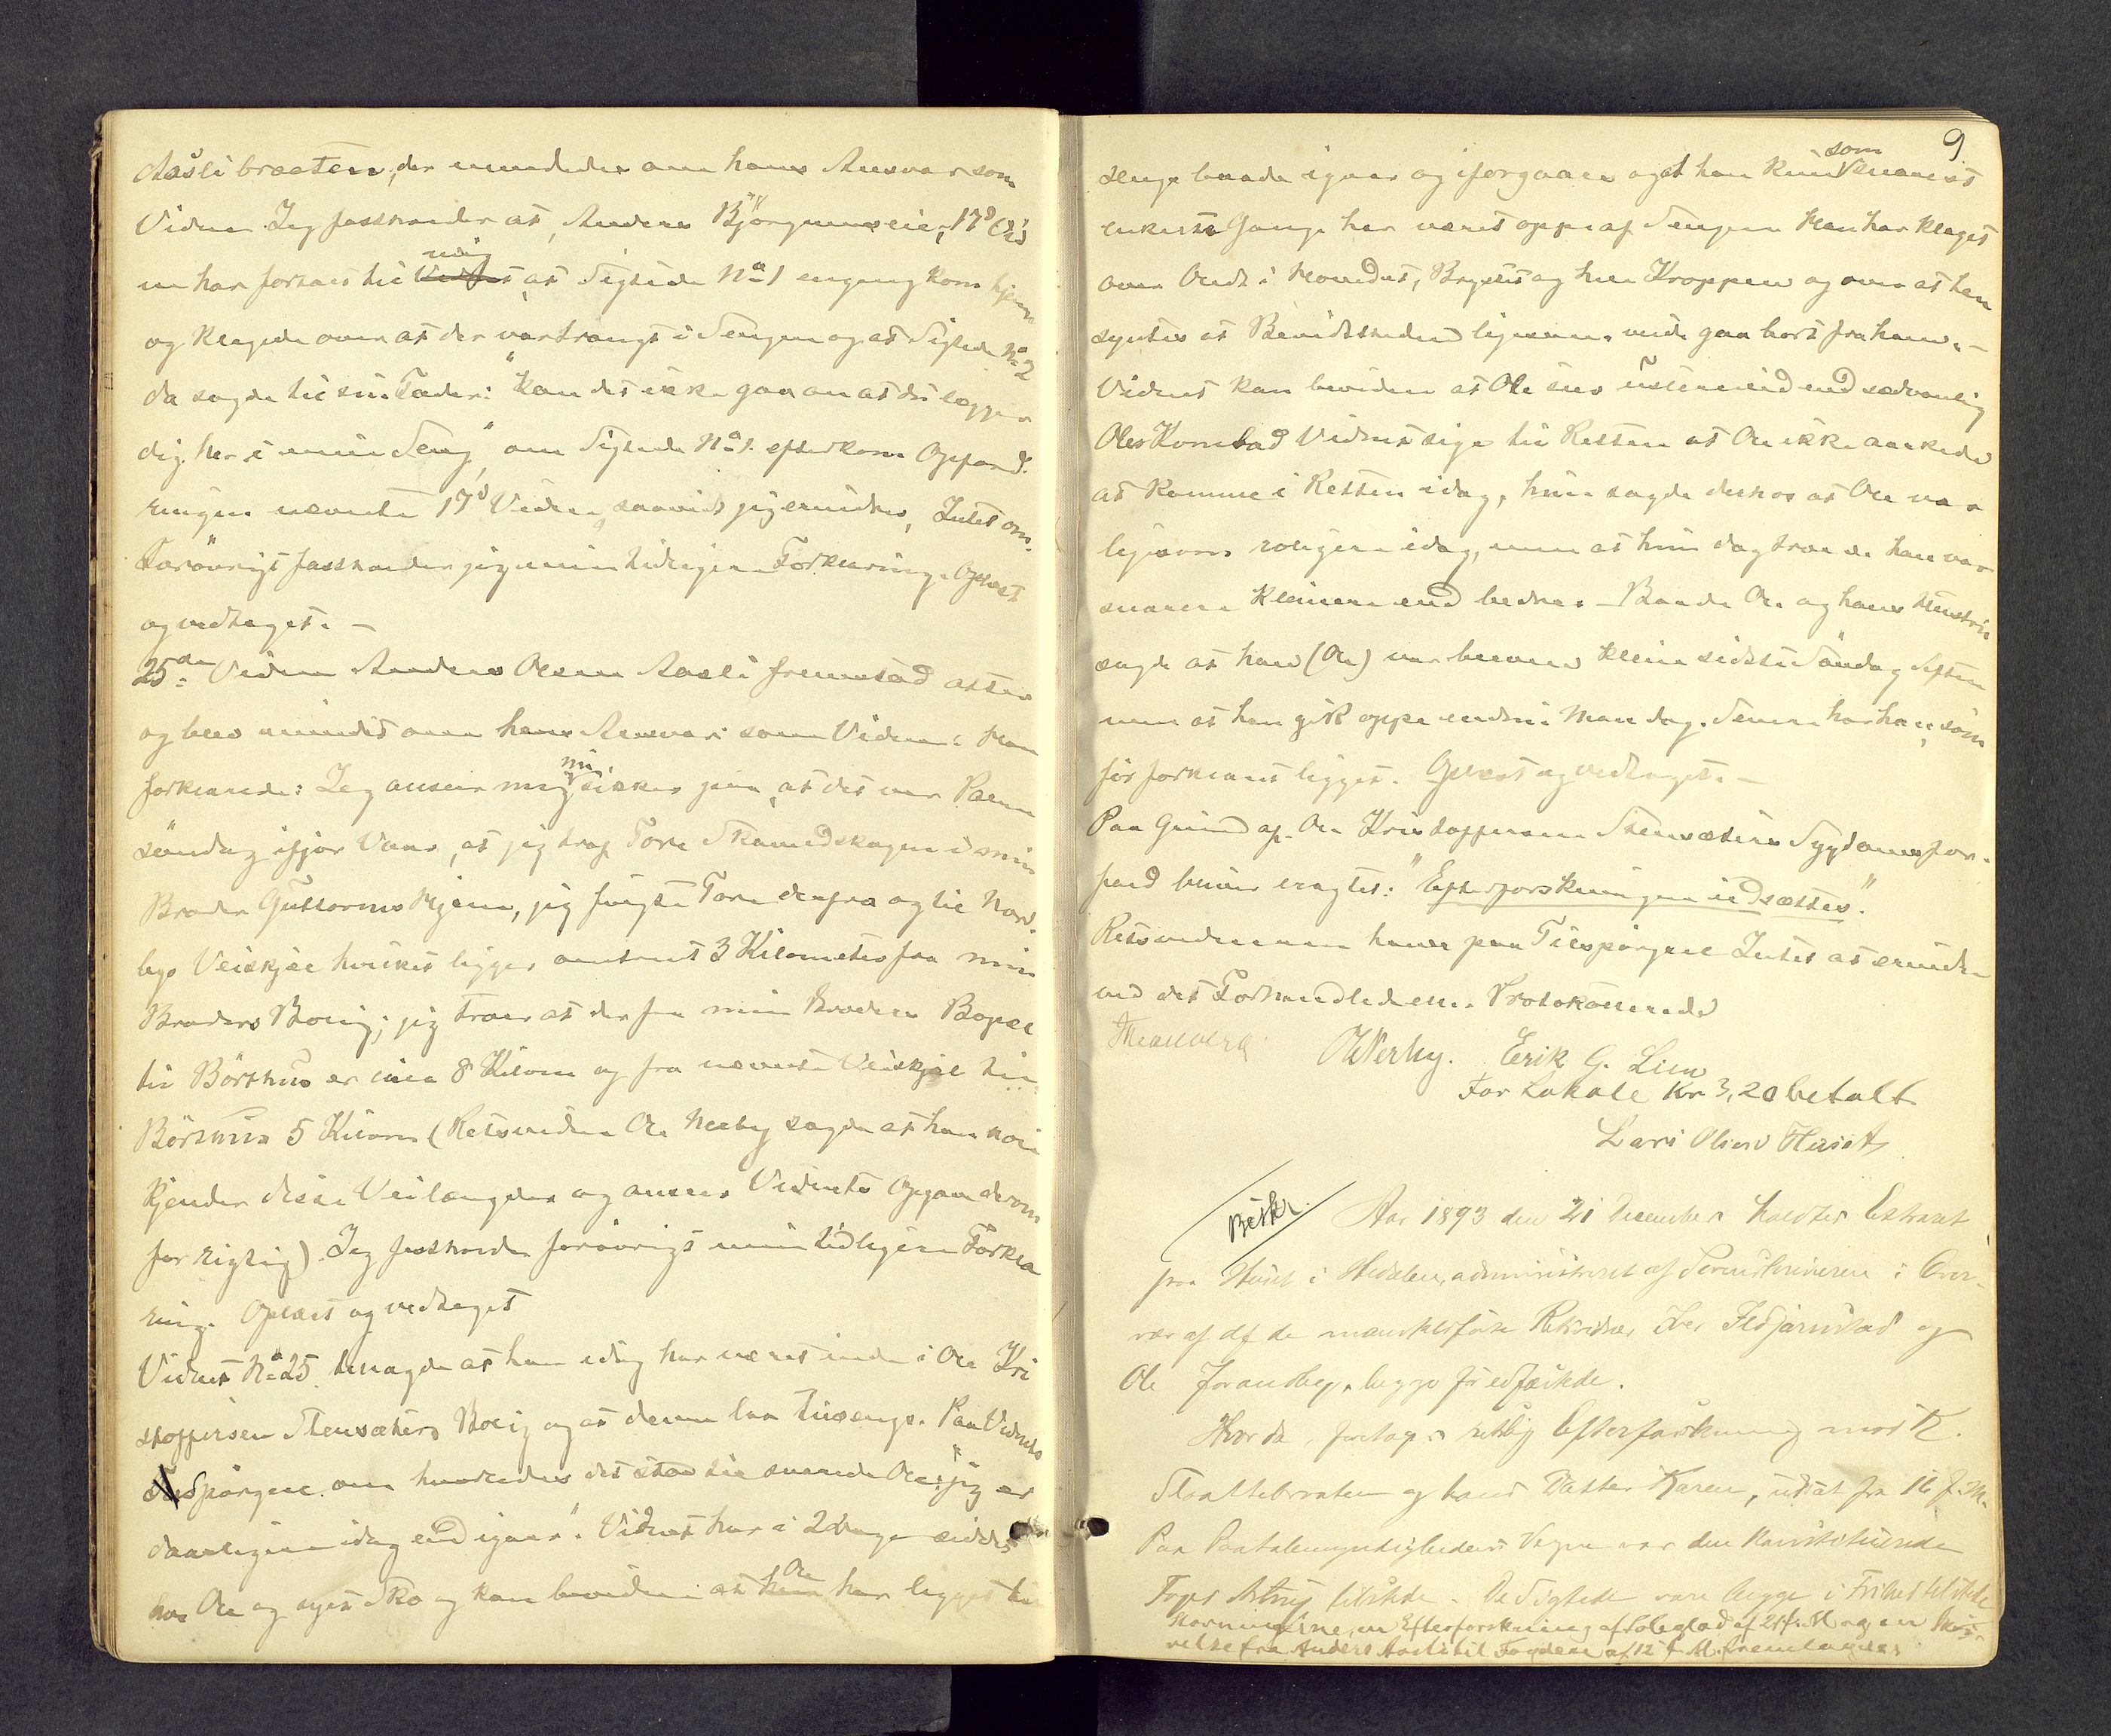 Aaslibraaten, der mindedes om hans Ansvar som
Vidne. Jeg fastholder at Anders Bjørgumseie, 17d Vid
ne har fortalt til mig at Sigtede No 1 engang kom hjem
og klagede over at der var trangt i Sengen og at Sigtede No 2
da sagde til sin Fader: "kan det ikke gaa an at du lægger
dig her i min Seng", om Sigtede No 1 efterkom Opford-
ringen nævnte 17d Vidne, saavidt jeg erindrer, Intet om.
Forøvrigt fastholder jeg min tidligere Forklaring. Oplæst
og vedtaget. –
25de Vidne Anders Olsen Aasli fremstod atter
og blev mindet om hans Ansvar som Vidne. Han
forklarede: Jeg anser mig nu sikker paa, at det var Palme
søndag ifjor Vaar, at jeg traf Tore Skaredskagen i min
Broder Guttorms Hjem, jeg fulgte Tore derfra og til Nord-
bys Veiskjel hvilket ligger omtrent 3 Kilometer fra min
Broders Bolig; jeg troer at der fra min Broders Bopæl
til Børthus er circa 8 Kilom og fra nævnte Veiskjel til
Børthus 5 Kilom (Retsvidne Ole Nerby sagde at han nøie
kjender disse Veilængder og anser Vidnets Opgav derom
for rigtig). Jeg fastholder forøvrigt min tidligere Forkla
ring. Oplæst og vedtaget
Vidnet No 25 tilsagde at han idag har været inde i Ole Kri
stoffersen Stensæters Bolig og at denne laa tilsengs. Paa Vidnets
Spørgsel om hvorledes det stod til svarede Ole: "jeg er
daarligere idag end igaar". Vidnet har i 2 dage siddet
hos Ole og syet Sko og kan bevidne at Ole har ligget til
9
sengs baade igaar og iforgaars og at han kun som snarest
enkelte Gange har været oppe af Sengen. Han har klaget
over Ondt i Hovedet, Brystet og hele Kroppen og over at han
syntes at Bevidstheden ligesom vilde gaa bort fra ham. –
Vidnet kan bevidne at Ole saa usselere ud end sædvanlig
Oles Kone bad Vidnet sige til Retten at Ole ikke aarkede
at komme i Retten idag, hun sagde derhos at Ole var
ligesom roligere idag, men at hun dog troede han var
snarere kleinere end bedre. – Baade Ole og hans Hustru
sagde at han (Ole) var bleven klein sidste Søndag Aften
men at han gik oppe endnu Mandag. Senere har han, som
før forklaret ligget. Oplæst og vedtaget. –
Paa Grund af Ole Kristoffersen Stensæters Sygdomsfor-
fald blev eragtet: "Efterforskningen udsættes".
Retsvidnerne havde paa Tilspørgsel Intet at erindre
ved det Forhandledeme Protokollerede
ONerby. Erik G. Lien
For Lokale Kr 3,20 betalt
Lars Olsen Huset
Beskr. Aar 1893 den 21 December holdtes Extraret
paa Huset i Hedalen, administreret af Sorenskriveren i Over-
vær af de mandtalsførte Retsvidner Iver Fldjarnstad og
Ole Jorandby, begge før edfæstede.
Hvorda foretoges retslig Efterforskning mod K.
Slaattebraaten og hans Datter Karen, udsat fra 16 f. M.
Paa Paatalemyndighedens Vegne var den konstituerede
Foged Astrup tilstede. De Sigtede vare begge i Frihed tilstede
Stævningerne, en Efterforskning af Soleglad af 21 f. M og en Skri-
velse fra Anders Aasli til Fogden af 12 f. M. fremlagdes.